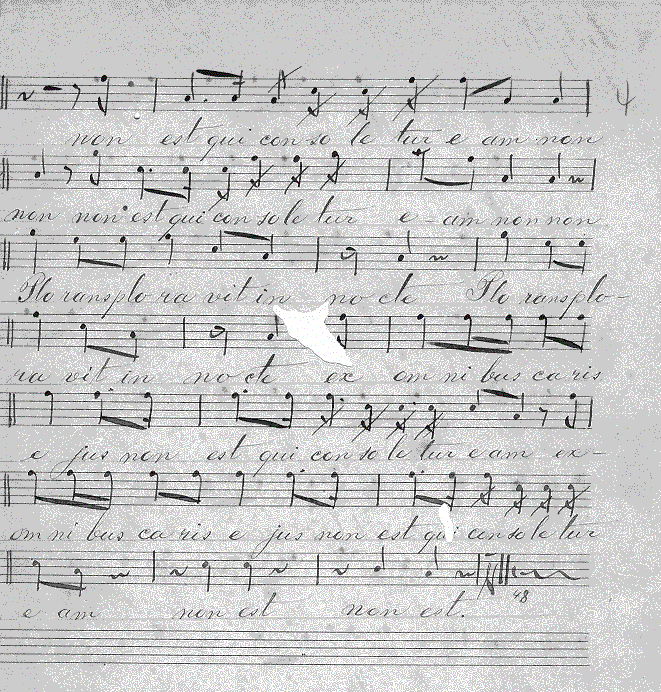 4
non est qui con so le tur e am non
non non est qui con so le tur e - am non non
Plo rans plo ra vit in no cte Plo rans plo -
ra vit in no cte ex om ni bus ca ris
e jus non est qui con so le tur e am ex -
om ni bus ca ris e jus non est qui con so le tur
48
e am non est non est.